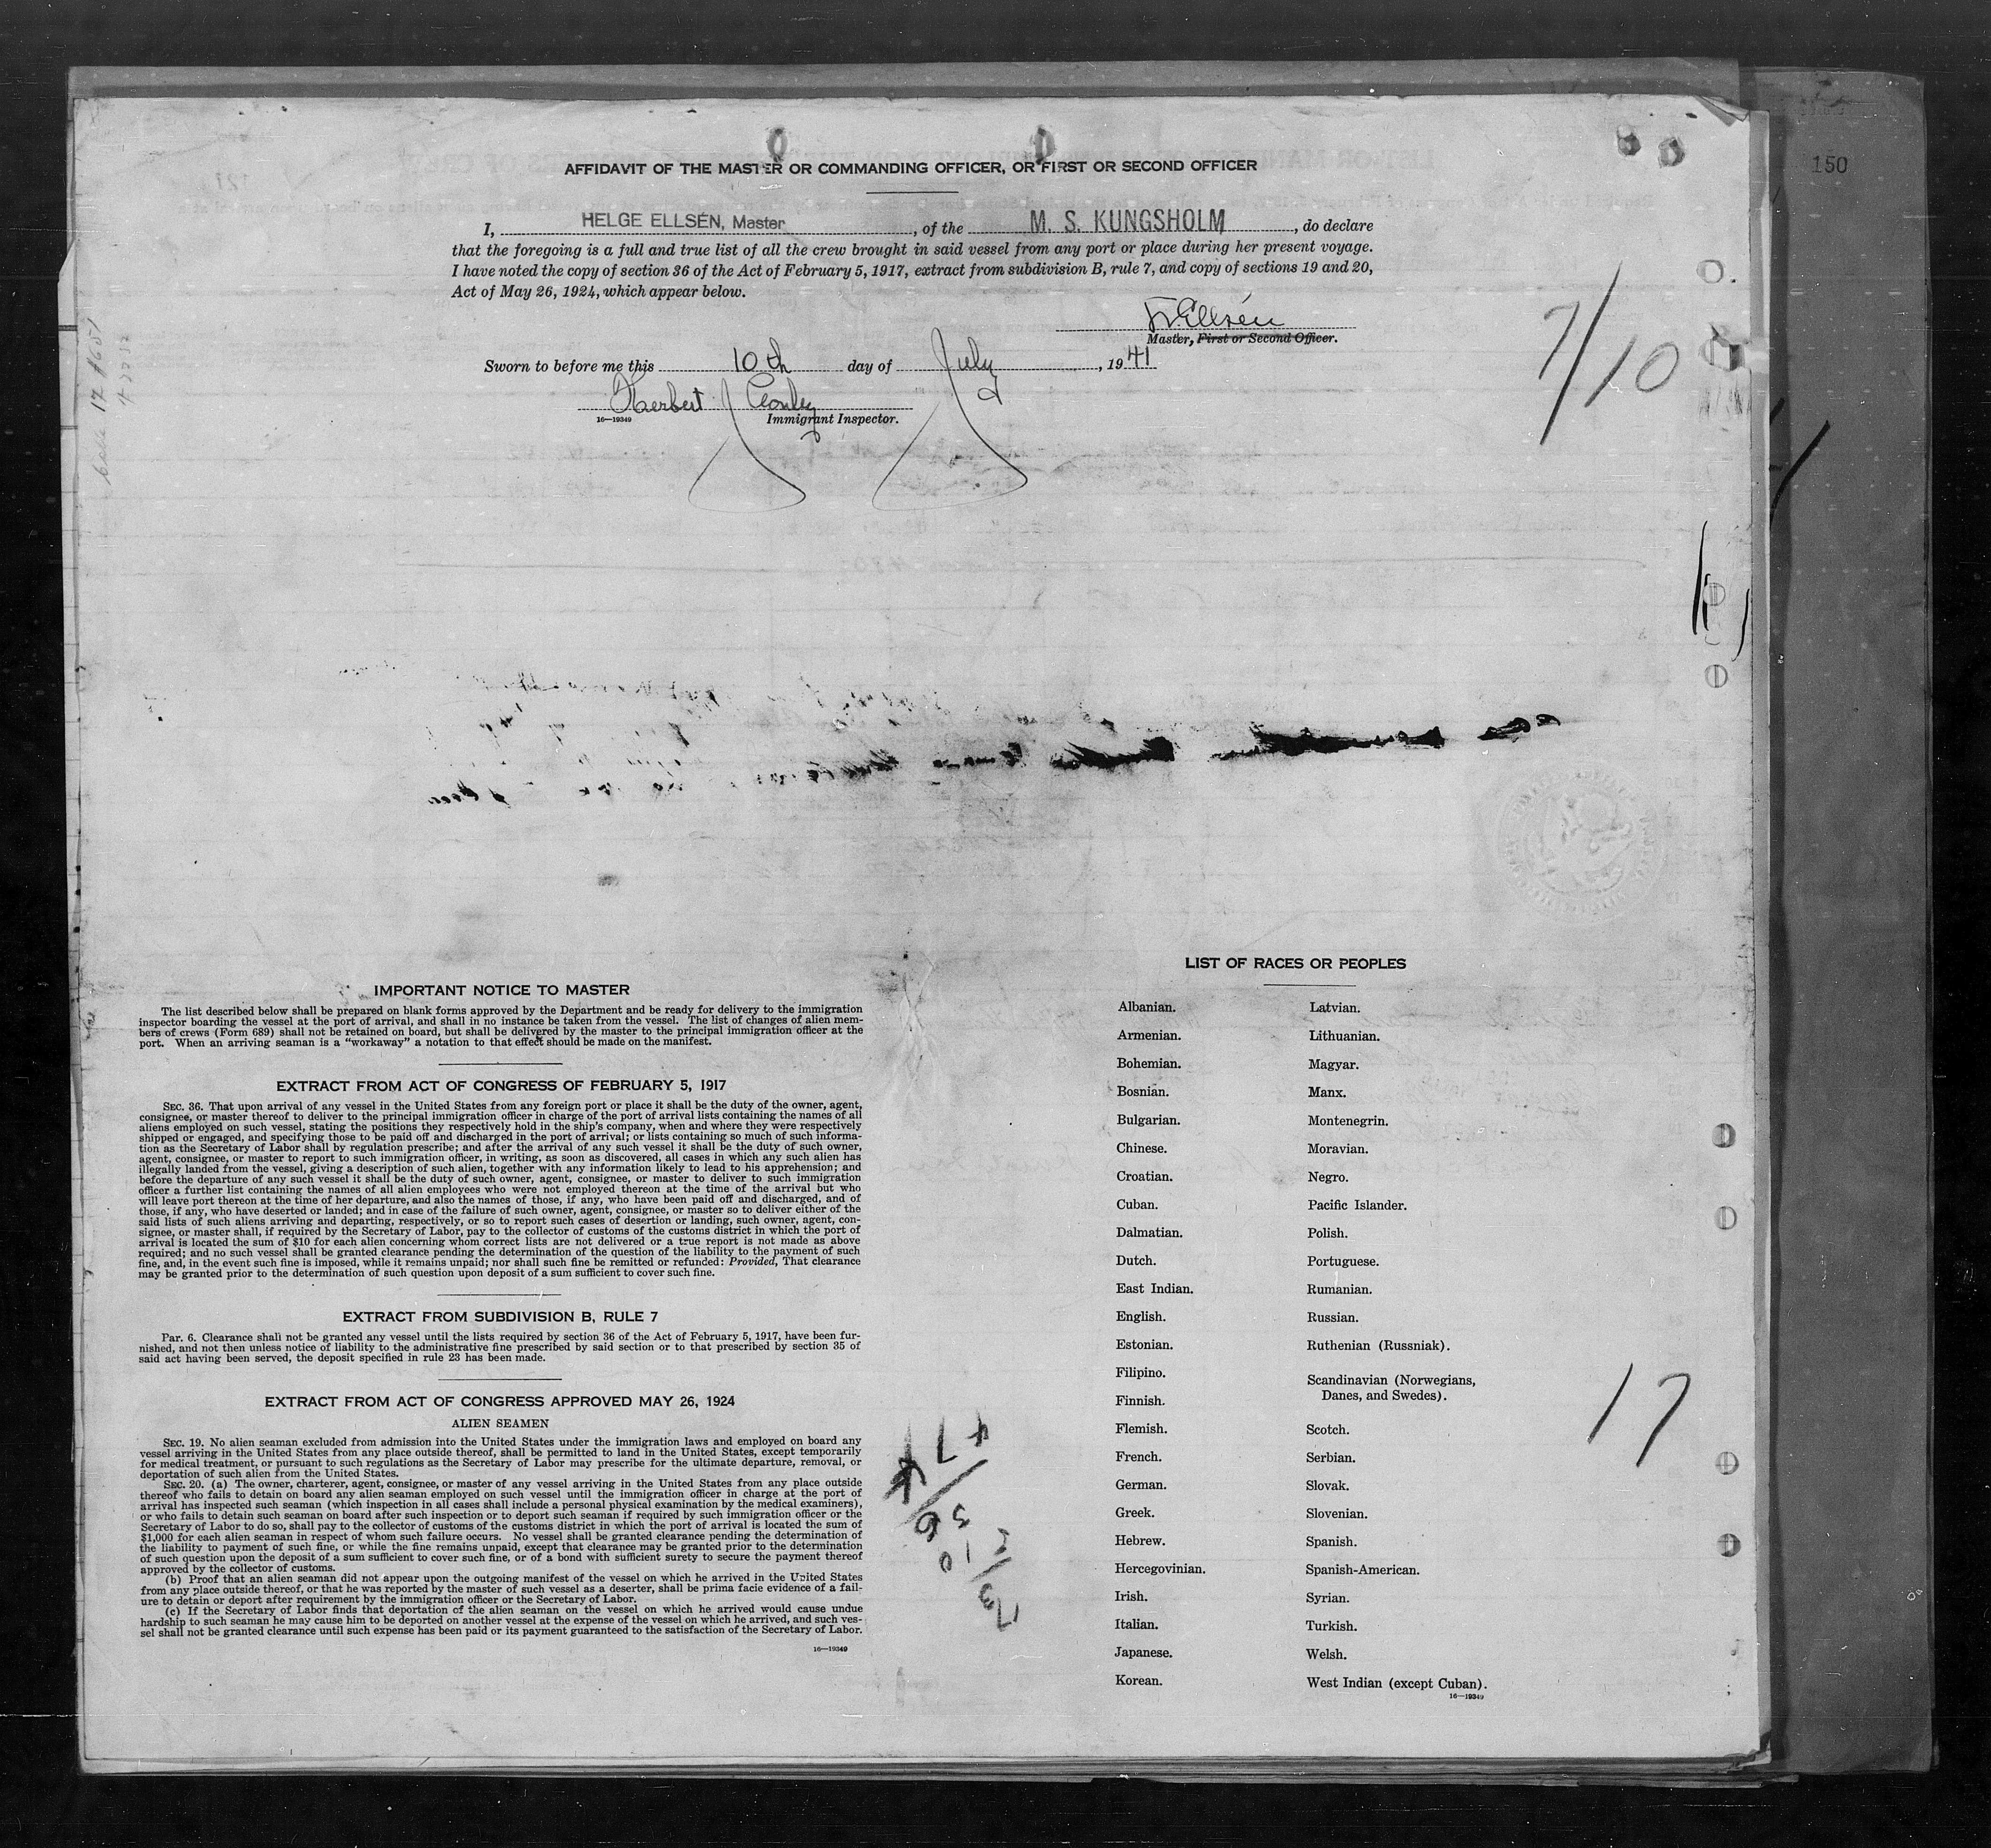 150
AFFIDAVIT OF THE MASTER OR COMMANDING OFFICER, OR FIRST OR SECOND OFFICER
I, HELGE ELLSÉN, Master, of the M. S. KUNGSHOLM, do declare
that the foregoing is a full and true list of all the crew brought in said vessel from any port or place during her present voyage.
I have noted the copy of section 36 of the Act of February 5, 1917, extract from subdivision B, rule 7, and copy of sections 19 and 20,
Act of May 26, 1924, which appear below.
Ellsén
Master, First or Second Officer.
7/10
Sworn to before me this 10th day of July, 1941
Herbert J
16—19349 Immigrant Inspector.
IMPORTANT NOTICE TO MASTER
The list described below shall be prepared on blank forms approved by the Department and be ready for delivery to the immigration
inspector boarding the vessel at the port of arrival, and shall in no instance be taken from the vessel. The list of changes of alien mem-
bers of crews (Form 689) shall not be retained on board, but shall be delivered by the master to the principal immigration officer at the
port. When an arriving seaman is a "workaway" a notation to that effect should be made on the manifest.
EXTRACT FROM ACT OF CONGRESS OF FEBRUARY 5, 1917
SEC. 36. That upon arrival of any vessel in the United States from any foreign port or place it shall be the duty of the owner, agent,
consignee, or master thereof to deliver to the principal immigration officer in charge of the port of arrival lists containing the names of all
aliens employed on such vessel, stating the positions they respectively hold in the ship's company, when and where they were respectively
shipped or engaged, and specifying those to be paid off and discharged in the port of arrival; or lists containing so much of such informa-
tion as the Secretary of Labor shall by regulation prescribe; and after the arrival of any such vessel it shall be the duty of such owner,
agent, consignee, or master to report to such immigration officer, in writing, as soon as discovered, all cases in which any such alien has
illegally landed from the vessel, giving a description of such alien, together with any information likely to lead to his apprehension; and
before the departure of any such vessel it shall be the duty of such owner, agent, consignee, or master to deliver to such immigration
officer a further list containing the names of all alien employees who were not employed thereon at the time of the arrival but who
will leave port thereon at the time of her departure, and also the names of those, if any, who have been paid off and discharged, and of
those, if any, who have deserted or landed; and in case of the failure of such owner, agent, consignee, or master so to deliver either of the
said lists of such aliens arriving and departing, respectively, or so to report such cases of desertion or landing, such owner, agent, con-
signee, or master shall, if required by the Secretary of Labor, pay to the collector of customs of the customs district in which the port of
arrival is located the sum of $10 for each alien concerning whom correct lists are not delivered or a true report is not made as above
required; and no such vessel shall be granted clearance pending the determination of the question of the liability to the payment of such
fine, and, in the event such fine is imposed, while it remains unpaid; nor shall such fine be remitted or refunded: Provided, That clearance
may be granted prior to the determination of such question upon deposit of a sum sufficient to cover such fine.
EXTRACT FROM SUBDIVISION B, RULE 7
Par. 6. Clearance shall not be granted any vessel until the lists required by section 36 of the Act of February 5, 1917, have been fur-
nished, and not then unless notice of liability to the administrative fine prescribed by said section or to that prescribed by section 35 of
said act having been served, the deposit specified in rule 23 has been made.
EXTRACT FROM ACT OF CONGRESS APPROVED MAY 26, 1924
ALIEN SEAMEN
SEC. 19. No alien seaman excluded from admission into the United States under the immigration laws and employed on board any
vessel arriving in the United States from any place outside thereof, shall be permitted to land in the United States, except temporarily
for medical treatment, or pursuant to such regulations as the Secretary of Labor may prescribe for the ultimate departure, removal, or
deportation of such alien from the United States.
SEC. 20. (a) The owner, charterer, agent, consignee, or master of any vessel arriving in the United States from any place outside
thereof who fails to detain on board any alien seaman employed on such vessel until the immigration officer in charge at the port of
arrival has inspected such seaman (which inspection in all cases shall include a personal physical examination by the medical examiners),
or who fails to detain such seaman on board after such inspection or to deport such seaman if required by such immigration officer or the
Secretary of Labor to do so, shall pay to the collector of customs of the customs district in which the port of arrival is located the sum of
$1,000 for each alien seaman in respect of whom such failure occurs. No vessel shall be granted clearance pending the determination of
the liability to payment of such fine, or while the fine remains unpaid, except that clearance may be granted prior to the determination
of such question upon the deposit of a sum sufficient to cover such fine, or of a bond with sufficient surety to secure the payment thereof
approved by the collector of customs.
(b) Proof that an alien seaman did not appear upon the outgoing manifest of the vessel on which he arrived in the United States
from any place outside thereof, or that he was reported by the master of such vessel as a deserter, shall be prima facie evidence of a fail-
ure to detain or deport after requirement by the immigration officer or the Secretary of Labor.
(c) If the Secretary of Labor finds that deportation of the alien seaman on the vessel on which he arrived would cause undue
hardship to such seaman he may cause him to be deported on another vessel at the expense of the vessel on which he arrived, and such ves-
sel shall not be granted clearance until such expense has been paid or its payment guaranteed to the satisfaction of the Secretary of Labor.
16—19349
LIST OF RACES OR PEOPLES
Albanian.
Armenian.
Bohemian.
Bosnian.
Bulgarian.
Chinese.
Croatian.
Cuban.
Dalmatian.
Dutch.
East Indian.
English.
Estonian.
Filipino.
Finnish.
Flemish.
French.
German.
Greek.
Hebrew.
Hercegovinian.
Irish.
Italian.
Japanese.
Korean.
Latvian.
Lithuanian.
Magyar.
Manx.
Montenegrin.
Moravian.
Negro.
Pacific Islander.
Polish.
Portuguese.
Rumanian.
Russian.
Ruthenian (Russniak).
Scandinavian (Norwegians,
Danes, and Swedes).
Scotch.
Serbian.
Slovak.
Slovenian.
Spanish.
Spanish-American.
Syrian.
Turkish.
Welsh.
West Indian (except Cuban).
16—19349
17